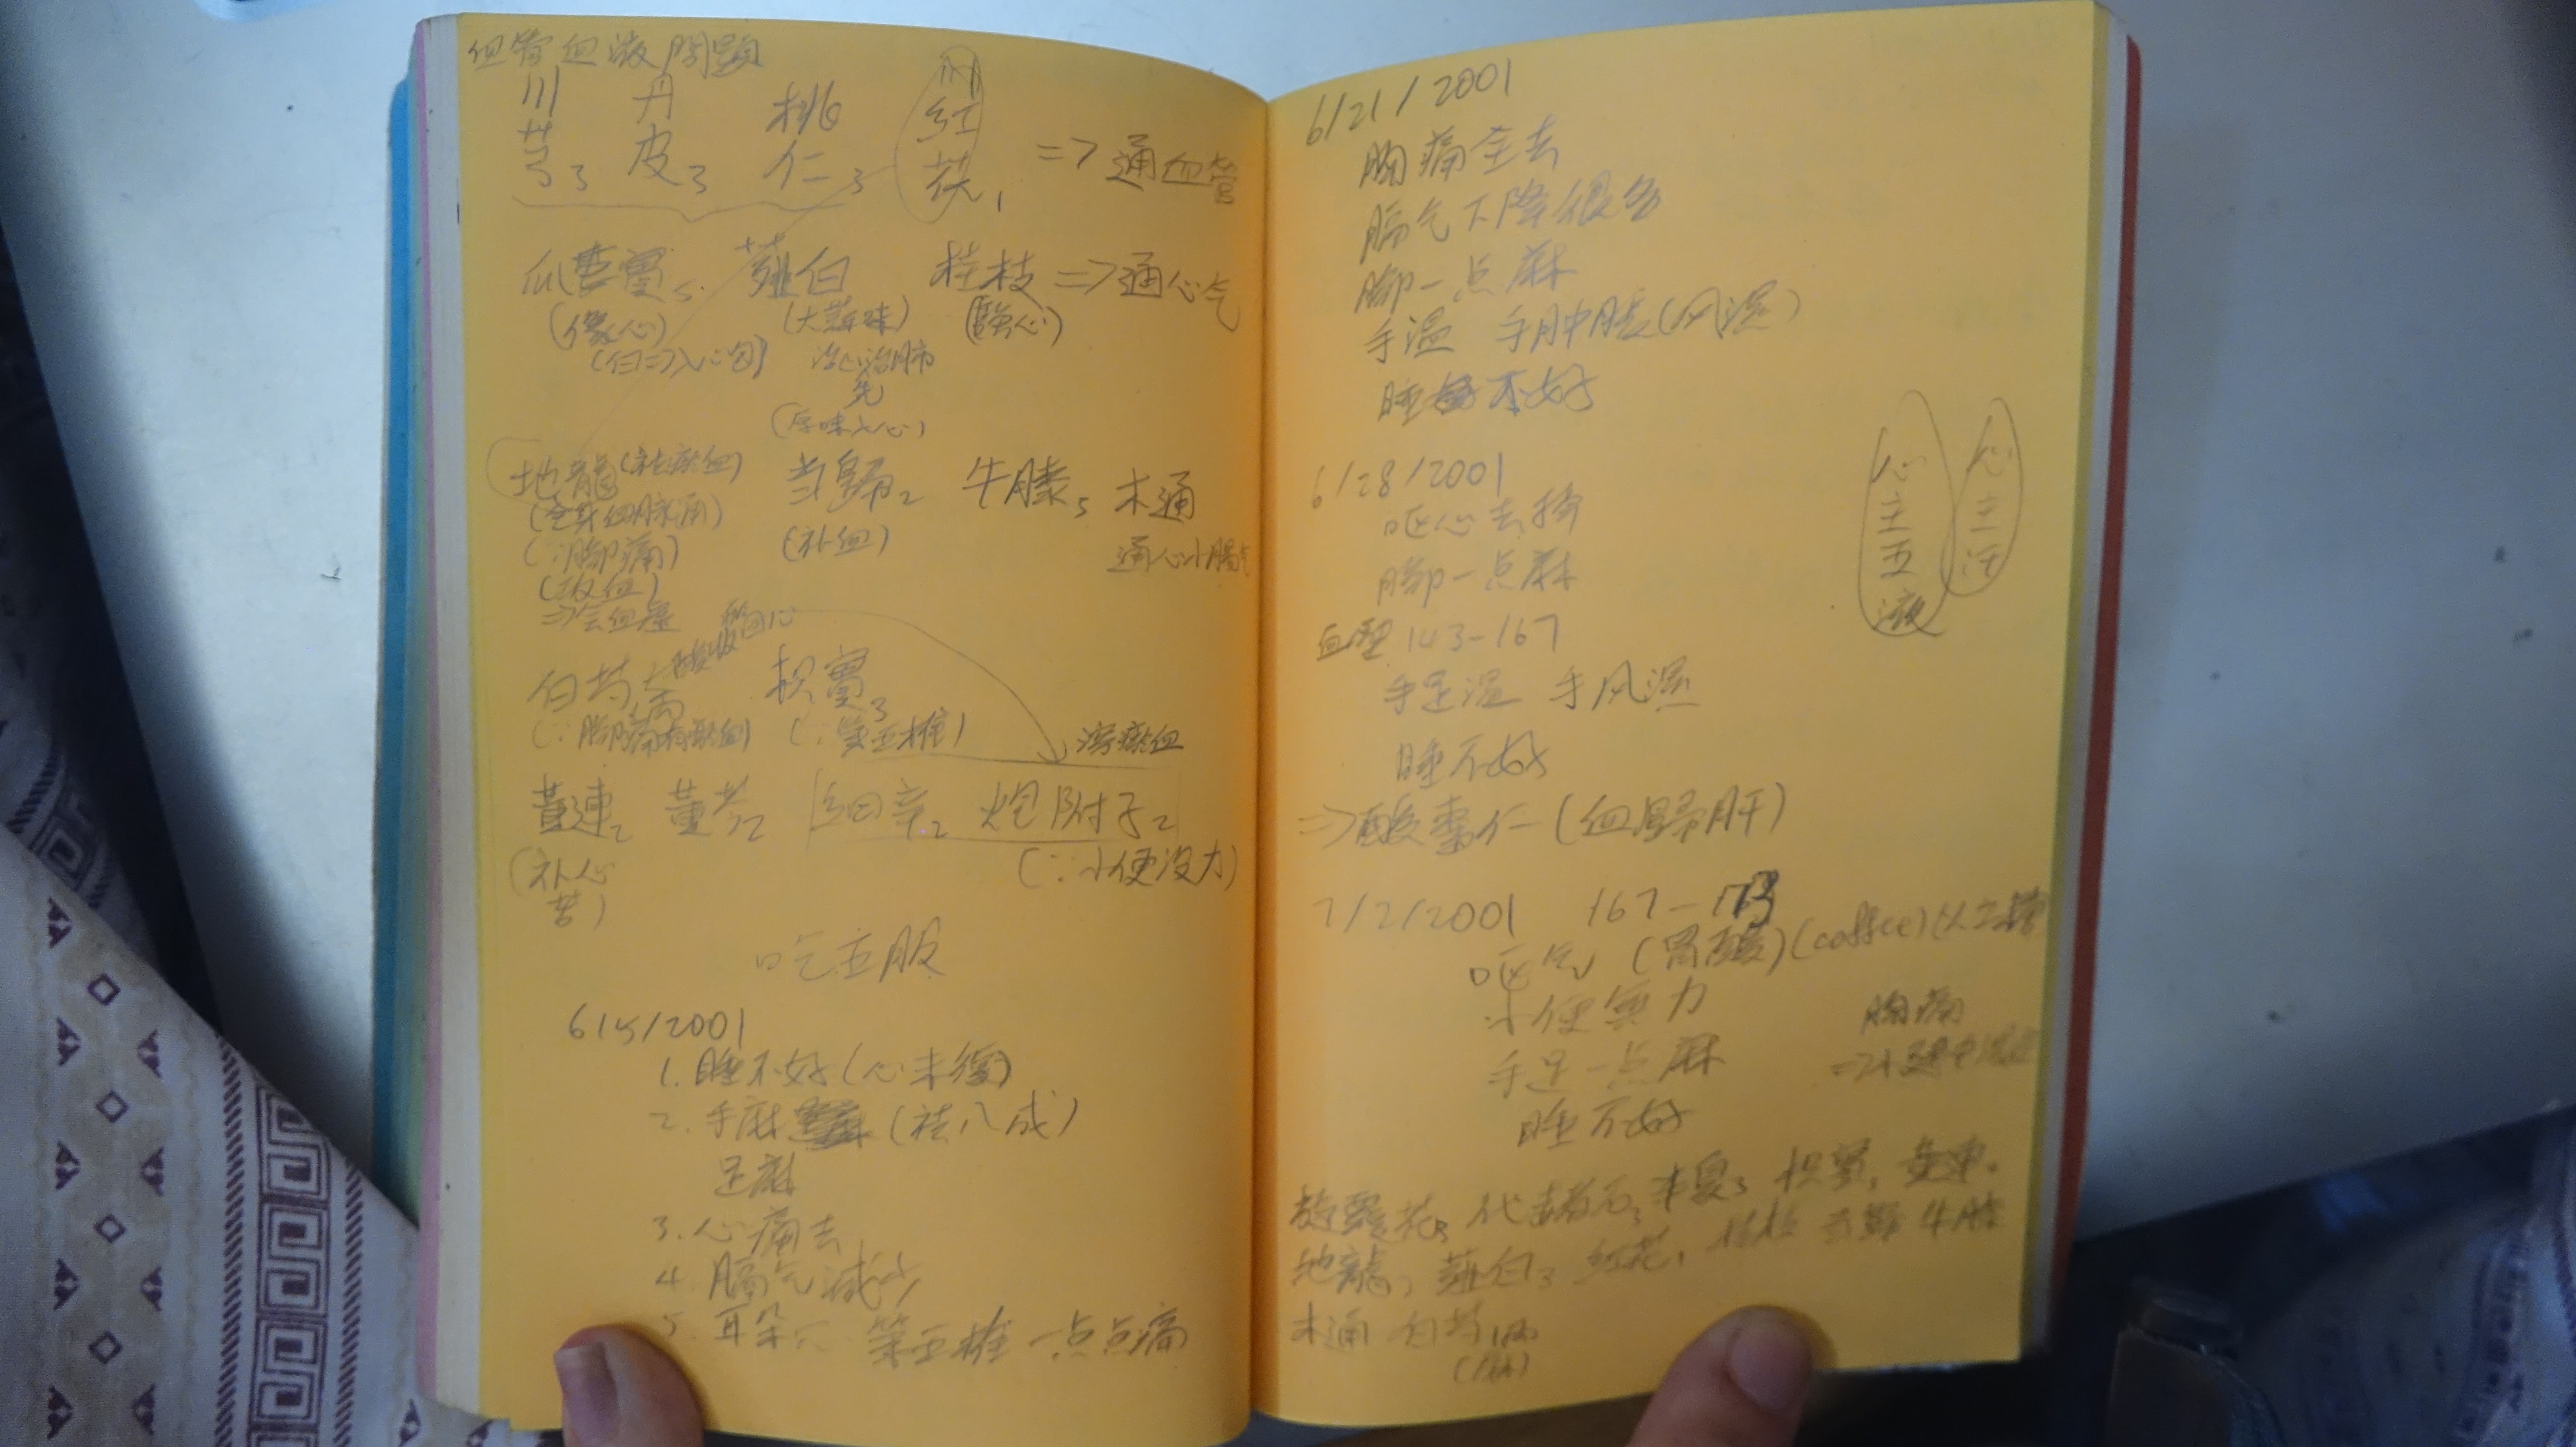 血管血液問題
川芎3 丹皮3 桃仁3 红花1 => 通血管
瓜蔞實5 薤白 桂枝 => 通心气
(像心) (大蒜味) (強心)
(白=>入心包) 治心治肺
先
(厚味入心)
地龍(社瘀血) 当歸2 牛膝5 木通
(全身血脉通) (补血) 通心小腸气
(∵腳痛)
(破血)
白芍 枳實3
(∵腳痛有瘀血) (∵第五椎) 瘀血
黃連2 黃芩2 细辛2 炮附子2
(补心 (∵小便沒力)
苦)
吃五服
6/5/2001
1. 睡不好(心未復)
2. 手麻 (袪八成)
足麻
3. 心痛去
4. 膈气減少
5. 耳朵 第五椎 一点点痛
6/21/2001
胸痛全去
膈气下降很多
腳一点麻
手温 手肿脹(风湿)
睡不好
6/28/2001
呕心去掉
腳一点麻
血壓 143-167
手足温 手风湿
睡不好
=> 酸棗仁(血歸肝)
心主五液
心主汗
7/2/2001 167-173
呕气 (胃酸)(coffee)
小便無力
手足一点麻
睡不好
胸痛
旋覆花3 代赭石3 半夏3 枳實 黃連
地龍 薤白3 红花 桂枝 当歸 牛膝
木通 白芍1两